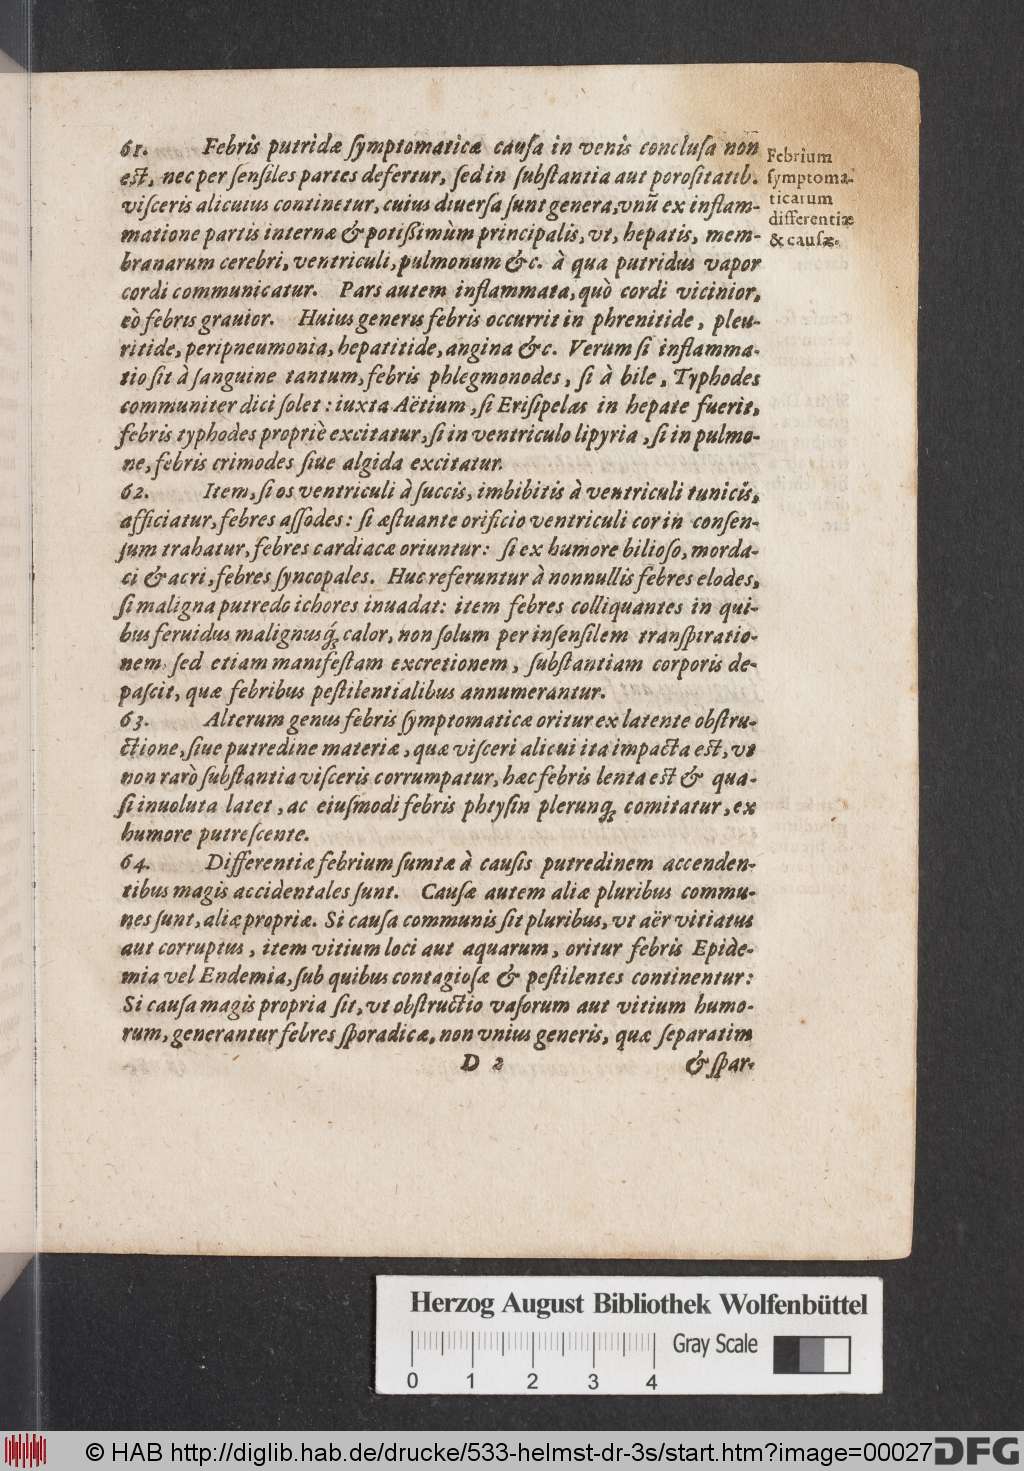 61. Febris putridæ ſymptomaticæ cauſa in venis concluſa non
eſt, nec per ſenſiles partes defertur, ſed in ſubſtantia aut poroſitatib.
viſceris alicuius continetur, cuius diuerſa ſunt genera, vnũ ex inflam-
matione partis internæ & potiſſimùm principalis, vt, hepatis, mem-
branarum cerebri, ventriculi, pulmonum &c. à qua putridus vapor
cordi communicatur. Pars autem inflammata, quò cordi vicinior,
eò febris grauior. Huius generis febris occurrit in phrenitide, pleu-
ritide, peripneumonia, hepatitide, angina &c. Verum ſi inflamma-
tio ſit à ſanguine tantum, febris phlegmonodes, ſi à bile, Typhodes
communiter dici ſolet: iuxta Aëtium, ſi Eriſipelas in hepate fuerit,
febris typhodes propriè excitatur, ſi in ventriculo lipyria, ſi in pulmo-
ne, febris crimodes ſiue algida excitatur.
Febrium
ſymptoma-
ticarum
differentiæ
& cauſæ.
62. Item, ſi os ventriculi à ſuccis, imbibitis à ventriculi tunicis,
afficiatur, febres aſſodes: ſi æſtuante orificio ventriculi cor in conſen-
ſum trahatur, febres cardiacæ oriuntur: ſi ex humore bilioſo, morda-
ci & acri, febres ſyncopales. Huc referuntur à nonnullis febres elodes,
ſi maligna putredo ichores inuadat: item febres colliquantes in qui-
bus feruidus malignusq́; calor, non ſolum per inſenſilem tranſpiratio-
nem ſed etiam manifeſtam excretionem, ſubſtantiam corporis de-
paſcit, quæ febribus peſtilentialibus annumerantur.
63. Alterum genus febris ſymptomaticæ oritur ex latente obſtru-
ctione, ſiue putredine materiæ, quæ viſceri alicui ita impacta eſt, vt
non rarò ſubſtantia viſceris corrumpatur, hæc febris lenta eſt & qua-
ſi inuoluta latet, ac eiuſmodi febris phtyſin plerunq́; comitatur, ex
humore putreſcente.
64. Differentiæ febrium ſumtæ à cauſis putredinem accenden-
tibus magis accidentales ſunt. Cauſæ autem aliæ pluribus commu-
nes ſunt, aliæ propriæ. Si cauſa communis ſit pluribus, vt aër vitiatus
aut corruptus, item vitium loci aut aquarum, oritur febris Epide-
mia vel Endemia, ſub quibus contagioſæ & peſtilentes continentur:
Si cauſa magis propria ſit, vt obſtructio vaſorum aut vitium humo-
rum, generantur febres ſporadicæ, non vnius generis, quæ ſeparatim
D 2 & ſpar-
Herzog August Bibliothek Wolfenbüttel
Gray Scale
0 1 2 3 4
© HAB http://diglib.hab.de/drucke/533-helmst-dr-3s/start.htm?image=00027
DFG